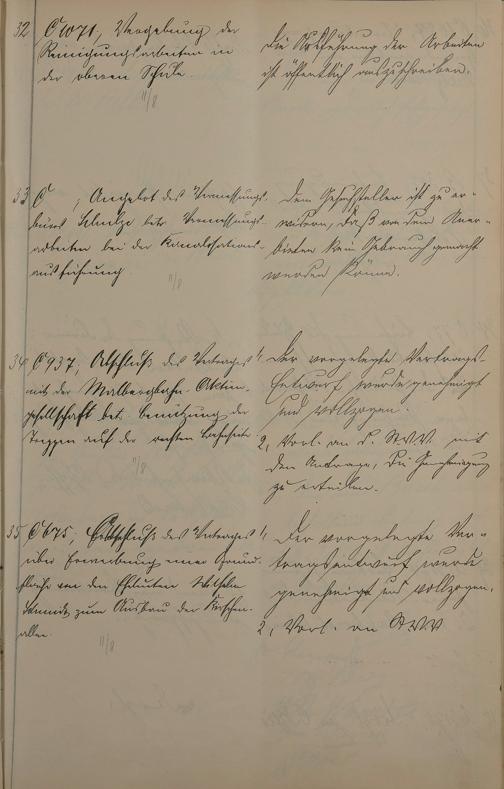 32 C 1071, Vergebung der
Reinigungsarbeiten in
der oberen Schule.
11/8
Die Ausführung der Arbeiten
ist öffentlich auszuschreiben.
33 C , Angebot des Vermessungs-
büros Schulze betr. Vermessungs-
arbeiten bei der Kanalisations-
ausführung
11/8
Dem Gesuchsteller ist zu er-
widern, daß von dem Aner-
bieten kein Gebrauch gemacht
werden könne.
34 C 937, Abschluß des Vertrages
mit der Malbergbahn-Aktien-
gesellschaft betr. Benutzung der
Treppen auf der rechten
11/8
1, Der vorgelegte Vertrags-
Entwurf wurde genehmigt
und vollzogen.
2, Vorl. an d. StVV mit
dem Antrage, die Genehmigung
zu erteilen.
35 C 675, Abschluß des Vertrages
über Erwerbung einer Grund-
fläche von den Eheleuten Wilhelm
Schmidt zum Ausbau der Kirschen-
allee.
11/8
1, Der vorgelegte Ver-
tragsentwurf wurde
genehmigt und vollzogen.
2, Vorl. an StVV